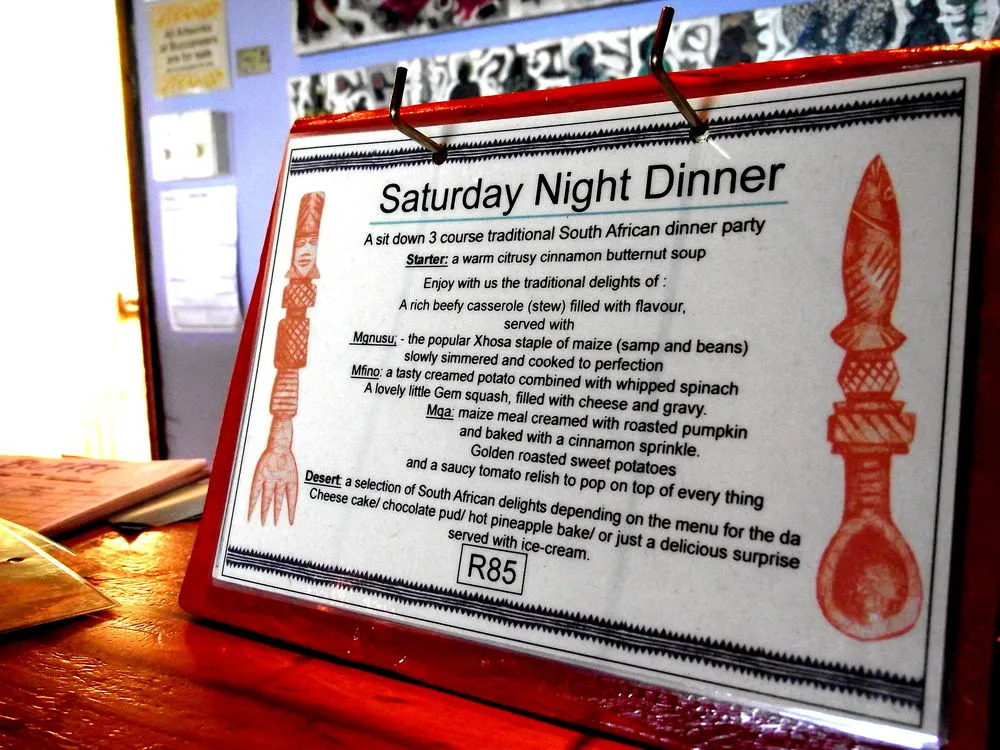 All Artworks
at Buccaneers
are for sale
Saturday Night Dinner
A sit down 3 course traditional South African dinner party
Starter: a warm citrusy cinnamon butternut soup
Enjoy with us the traditional delights of :
A rich beefy casserole (stew) filled with flavour,
served with
Mgnusu; - the popular Xhosa staple of maize (samp and beans)
slowly simmered and cooked to perfection
Mfino: a tasty creamed potato combined with whipped spinach
A lovely little Gem squash, filled with cheese and gravy.
Mqa: maize meal creamed with roasted pumpkin
and baked with a cinnamon sprinkle.
Golden roasted sweet potatoes
and a saucy tomato relish to pop on top of every thing
Desert: a selection of South African delights depending on the menu for the da
Cheese cake/ chocolate pud/ hot pineapple bake/ or just a delicious surprise
served with ice-cream.
R85